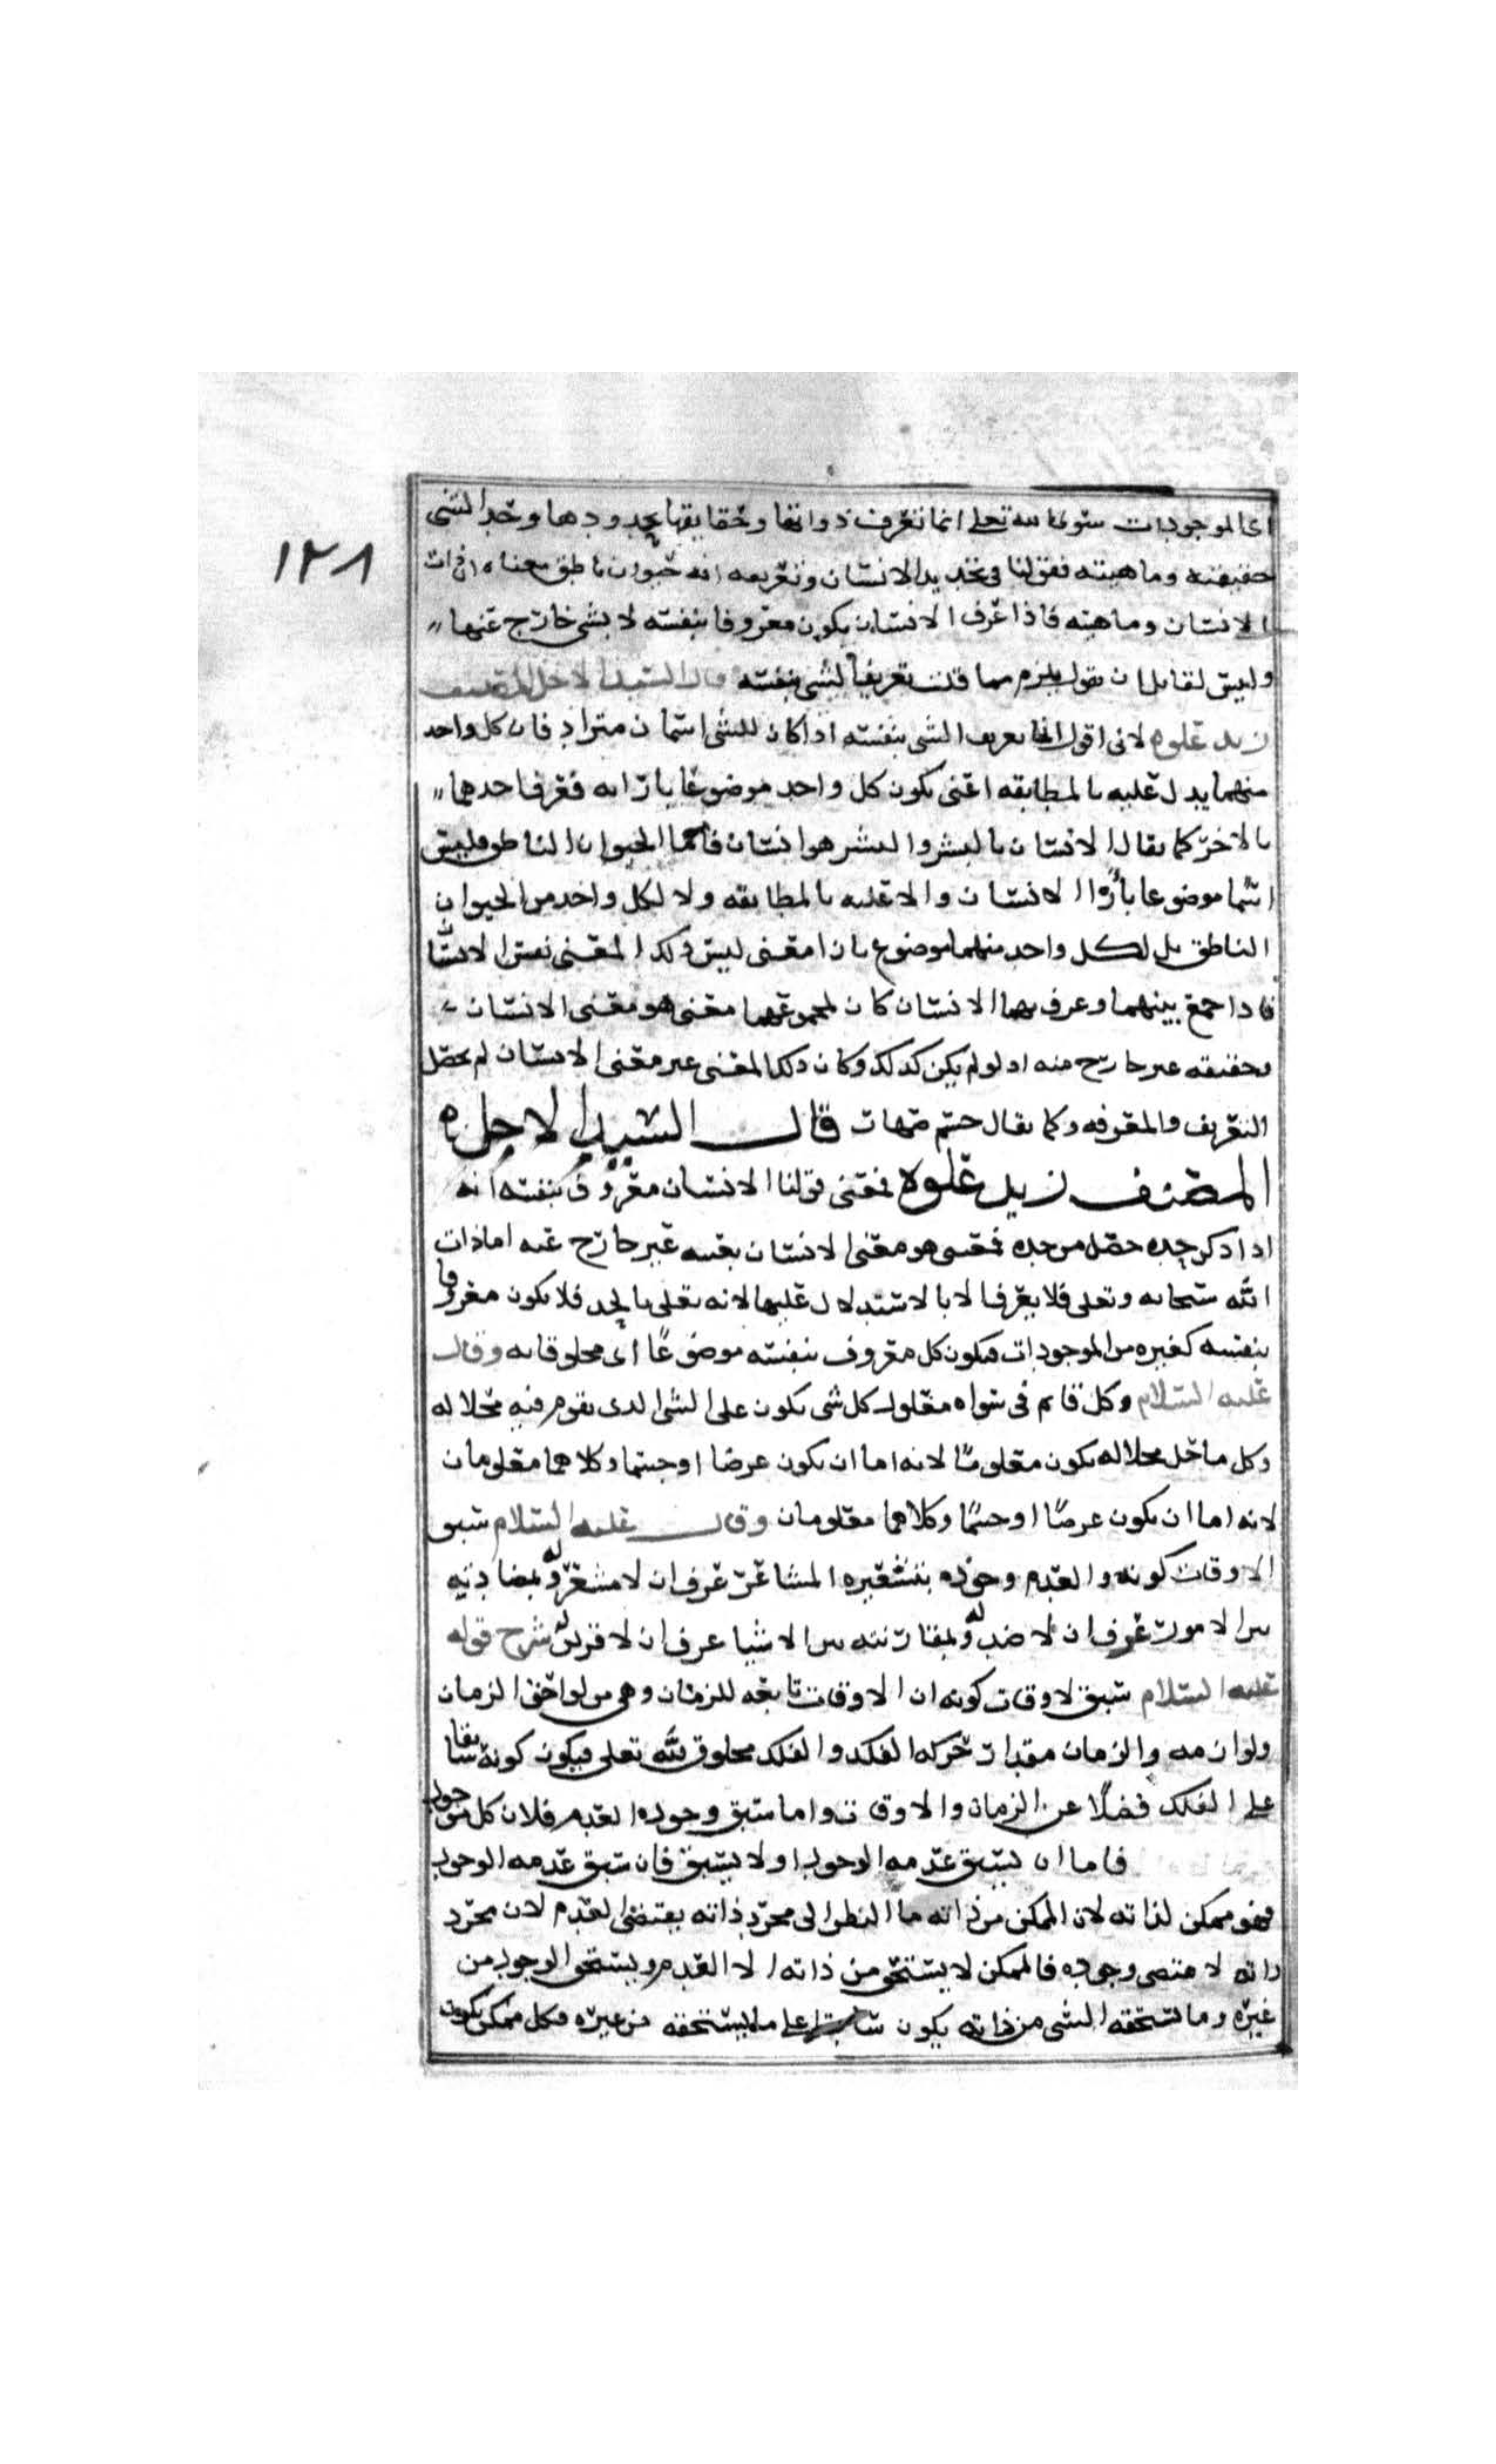 ١٢٨
اى الموجودات سوى الله تعلى انما تعرف ذواتها وحقايقها بحدودها وحد الشى
حقيقته وماهيته فقولنا فى تحديد الانسان وتعريفه انه حيوان ناطق معناه ان ذات
الانسان وماهيته فاذا عرف الانسان يكون معروفا بنفسته لا بشى خارج عنها
وليس لقايل ان يقول يلزم مما قلت تعريف الشى بنفسته قال السيد الاجل المصنف
زيد علوه لانى اقول انما يعرف الشى بنفسته اذا كان للشى اسمان مترادفان كل واحد
منهما يدل عليه بالمطابقه اعنى يكون كل واحد موضوعا بازايه فعرف احدهما
بالاخر كما يقال الانسان بالبشر والبشر هو انسان فاما الحيوان الناطق فليس
اسما موضوعا بازا الانسان والا عليه بالمطابقه ولا لكل واحد من الحيوان
الناطق بل لكل واحد منهما موضوع بازا معنى ليس ذلك المعنى نفس الانسان
فاذا جمع بينهما وعرف بهما الانسان كان لمجموعهما معنى هو معنى الانسان
وحقيقته غير خارج منه اذ لو لم يكن كذلك وكان ذلك المعنى غير معنى الانسان لم يحصل
التعريف والمعرفه وكما يقال جسم قال السيد الاجل
المصنف زيد علوه فمعنى قولنا الانسان معروف بنفسته انه
اذا ذكر حده حصل من حده فمعنى هو معنى الانسان بعينه غير خارج عنه اما ذات
الله سبحانه وتعلى فلا يعرف الا بالاستدلال عليها لانه تعلى بالحد فلا يكون معروفا
بنفسه كغيره من الموجودات فيكون كل معروف بنفسته موضوعًا اى مخلوقا له وقال
عليه السلام وكل قايم فى سواه معلول كل شى يكون على الشى الذى يقوم فيه محلا له
وكل ما حل محلا له يكون معلومًا لانه اما ان يكون عرضا او جسما وكلاهما معلومان
لانه اما ان يكون عرضًا او جسمًا وكلاهما معلومان وقال عليه السلام سبق
الاوقات كونه والعدم وجوده بتشعيره المشاعر عرف ان لا مشعر له وبمضادته
بين الامور عرف ان لا ضد له وبمقارنته بين الاشيا عرف ان لا قرين له شرح قوله
عليه السلام سبق لاوقات كونه ان الاوقات تابعه للزمان وهى من لواحق الزمان
ولوازمه والزمان مقدار حركه الفلك والفلك مخلوق لله تعلى فيكون كونه سابقا
على الفلك فضلًا عن الزمان والاوقات واما سبق وجوده العدم فلان كل موجود
فاما ان يسبق عدمه الوجود او لا يسبق فان سبق عدمه الوجود
فهو ممكن لذاته لان الممكن من ذاته ما النظر الى مجرد ذاته يقتضى العدم لان مجرد
ذاته لا يقتضى وجوده فالممكن لا يستحق من ذاته الا العدم ويستحق الوجود من
غيره وما يستحقه الشى من ذاته يكون سابقا على ما يستحقه من غيره فكل ممكن يكون